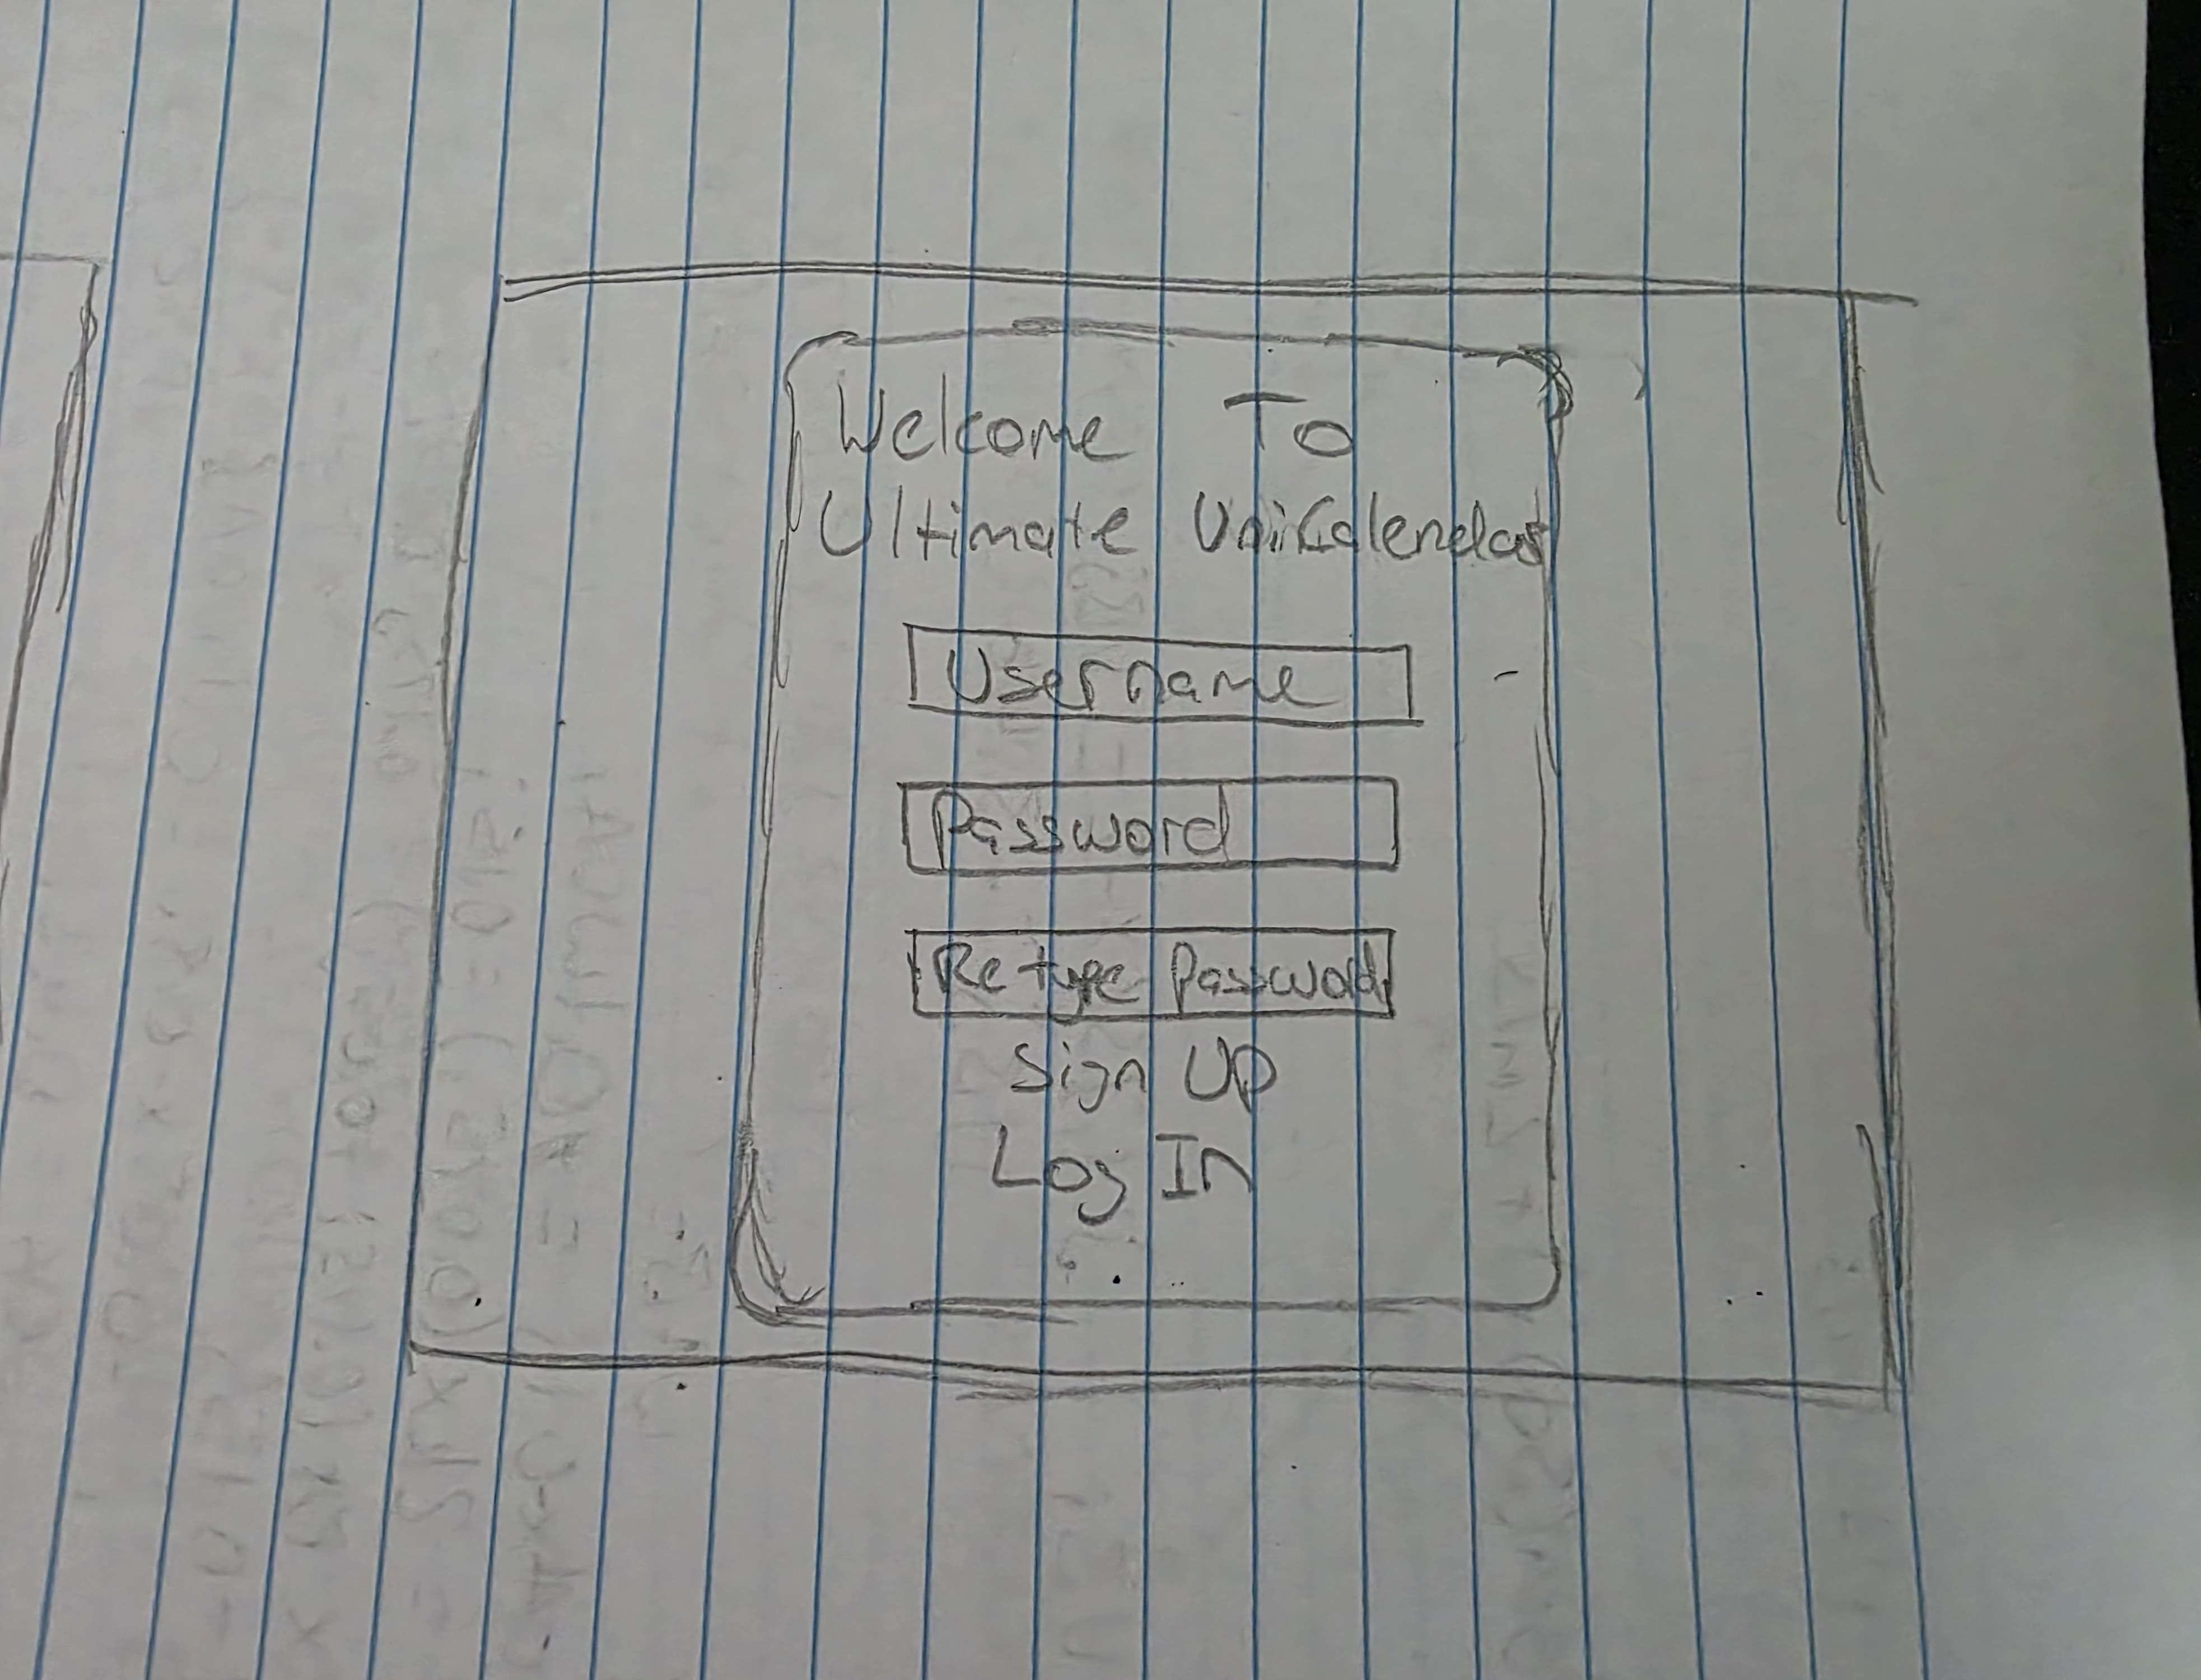 Welcome To
Ultimate UniCalendar
Username
Password
Retype Password
Sign Up
Log In